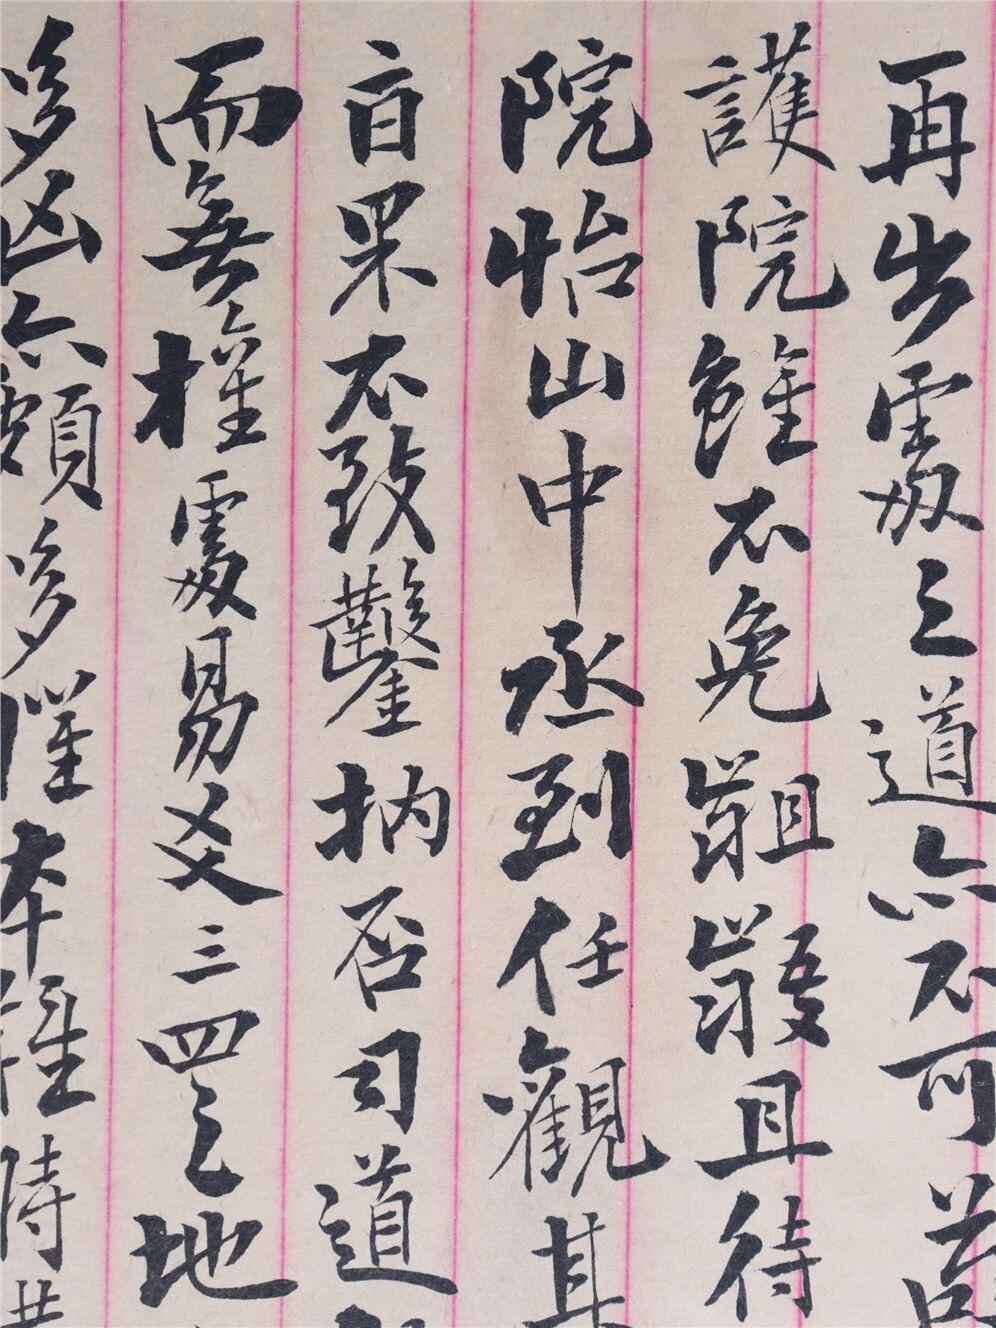 再出處之道亦不可苟
護院雖不免齟齬且待
院怡山中丞到任觀其
旨果不致鑿枘否司道
而無權處易爻三四之地
多凶亦頗多懼本難